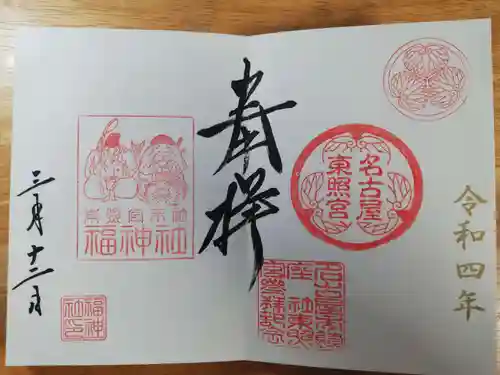 令和四年
名古屋
東照宮
奉拝
福神社
福神
社印
三月十二日